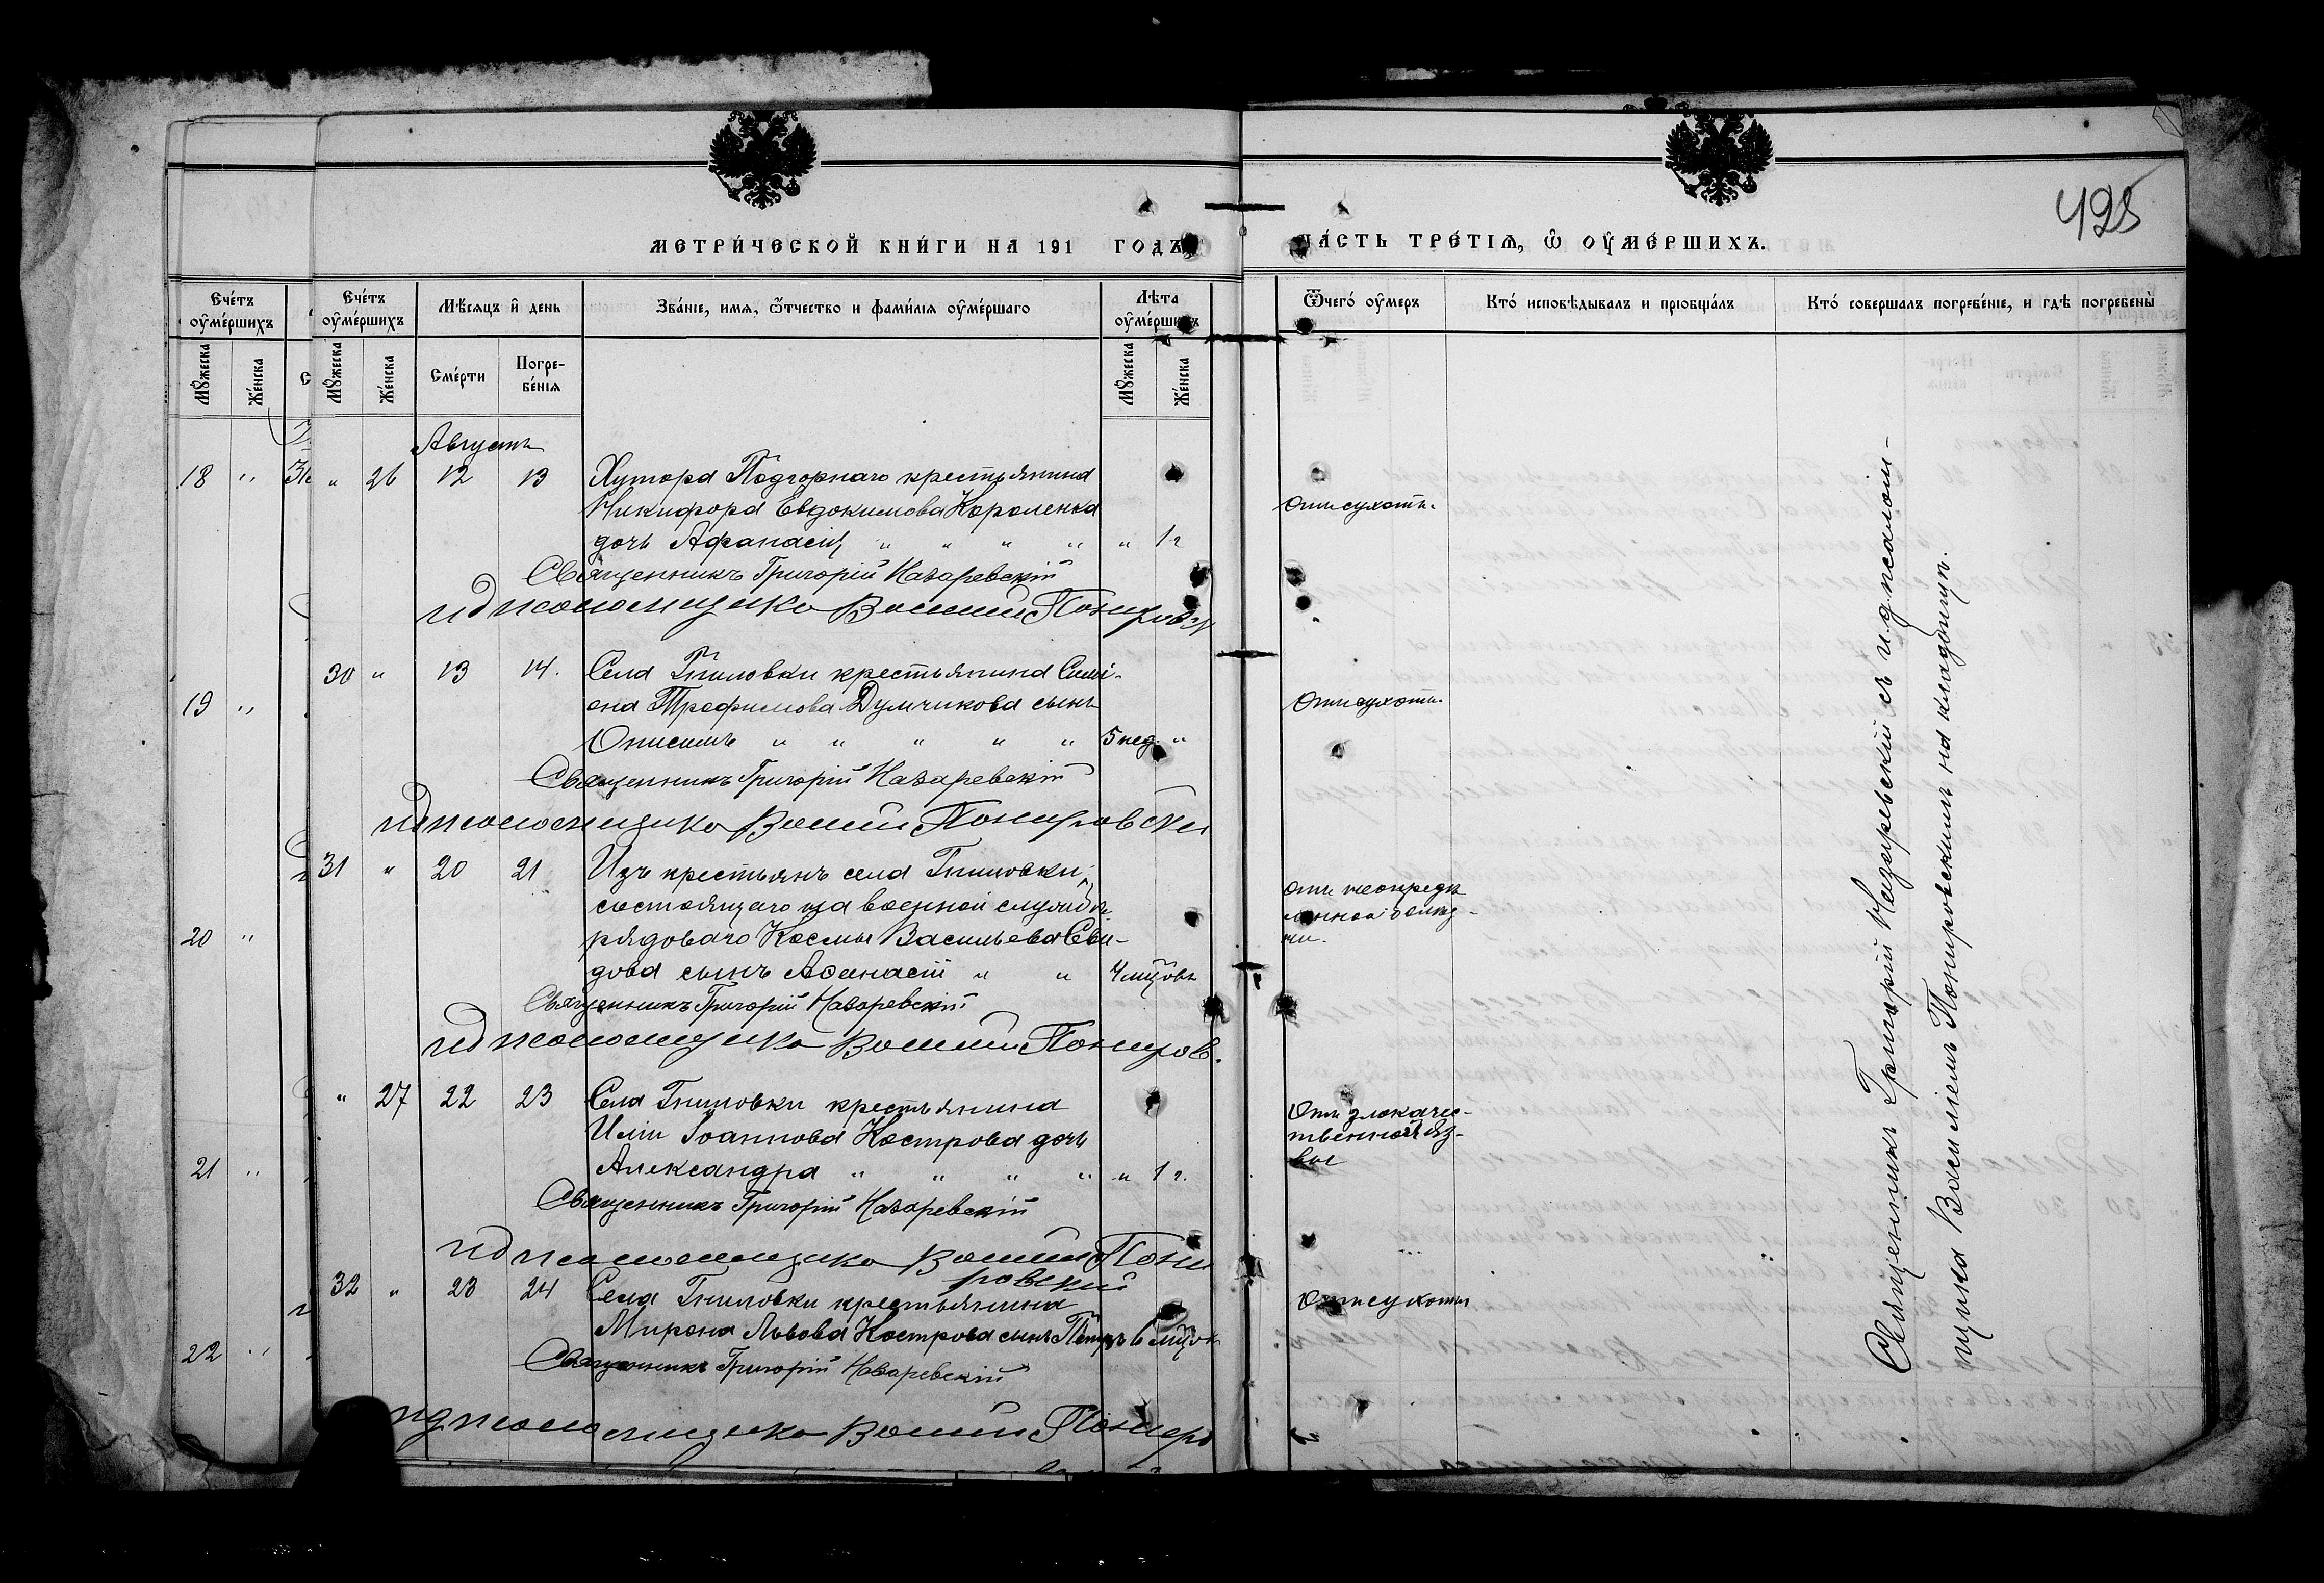 425
МЕТРИЧЕСКОЙ КНИГИ НА 191 ГОДЪ
ЧАСТЬ ТРЕТІЯ, Ѿ ОУМЕРШИХЪ.
Счетъ оумершихъ
Мужеска
Женска
Счетъ оумершихъ
Мѣсяцъ и день
Званіе, имя, Ѿчество и фамилія оумершаго
Лѣта оумершихъ
Мужеска
Женска
Смерти
Погре-
бенія
Мужеска
Женска
Ѿчего оумеръ
Кто исповѣдывалъ и пріобщалъ
Кто совершалъ погребеніе, и гдѣ погребены
18 "
19 "
20 "
21 "
22 "
Августъ
" 26 12 13 Хутора Подгорнаго крестьянина
Никифора Евдокимова Короленка
дочь Афанасія " " " " " 1 г
Отъ сухотъ.
Священникъ Григорій Назаревскій
ид псаломщика Василій Понировск
30 " 13 14. Села Гниловки крестьянина Симе-
она Трофимова Думчикова сынъ
Онисимъ " " " " " 5 нед. "
Отъ сухотъ.
Священникъ Григорій Назаревскій
ид псаломщика Василій Понировскій
31 " 20 21 Изъ крестьянъ села Гниловки,
состоящаго на военной службѣ
рядоваго Космы Васильева Сви-
дова сынъ Аѳанасій " " 4 мѣсов
Отъ неопредѣ
ленной болѣз-
ни.
Священникъ Григорій Назаревскій
ид псаломщика Василій Пониров.
" 27 22 23 Села Гниловки крестьянина
Иліи Іоаннова Кострова дочь
Александра " " " " " 1 г.
Отъ злокаче-
ственной яз-
вы
Священникъ Григорій Назаревскій
ид псаломщика Василій Пони
ровскій
32 " 23 24 Села Гниловки крестьянина
Мирона Львова Кострова сынъ Петръ 6 мѣсов
Отъ сухотъ
Священникъ Григорій Назаревскій
ид псаломщика Василій Пониро
Священникъ Григорій Назаревскій съ и.д. псалом-
щика Василіемъ Понировскимъ на кладбищѣ.